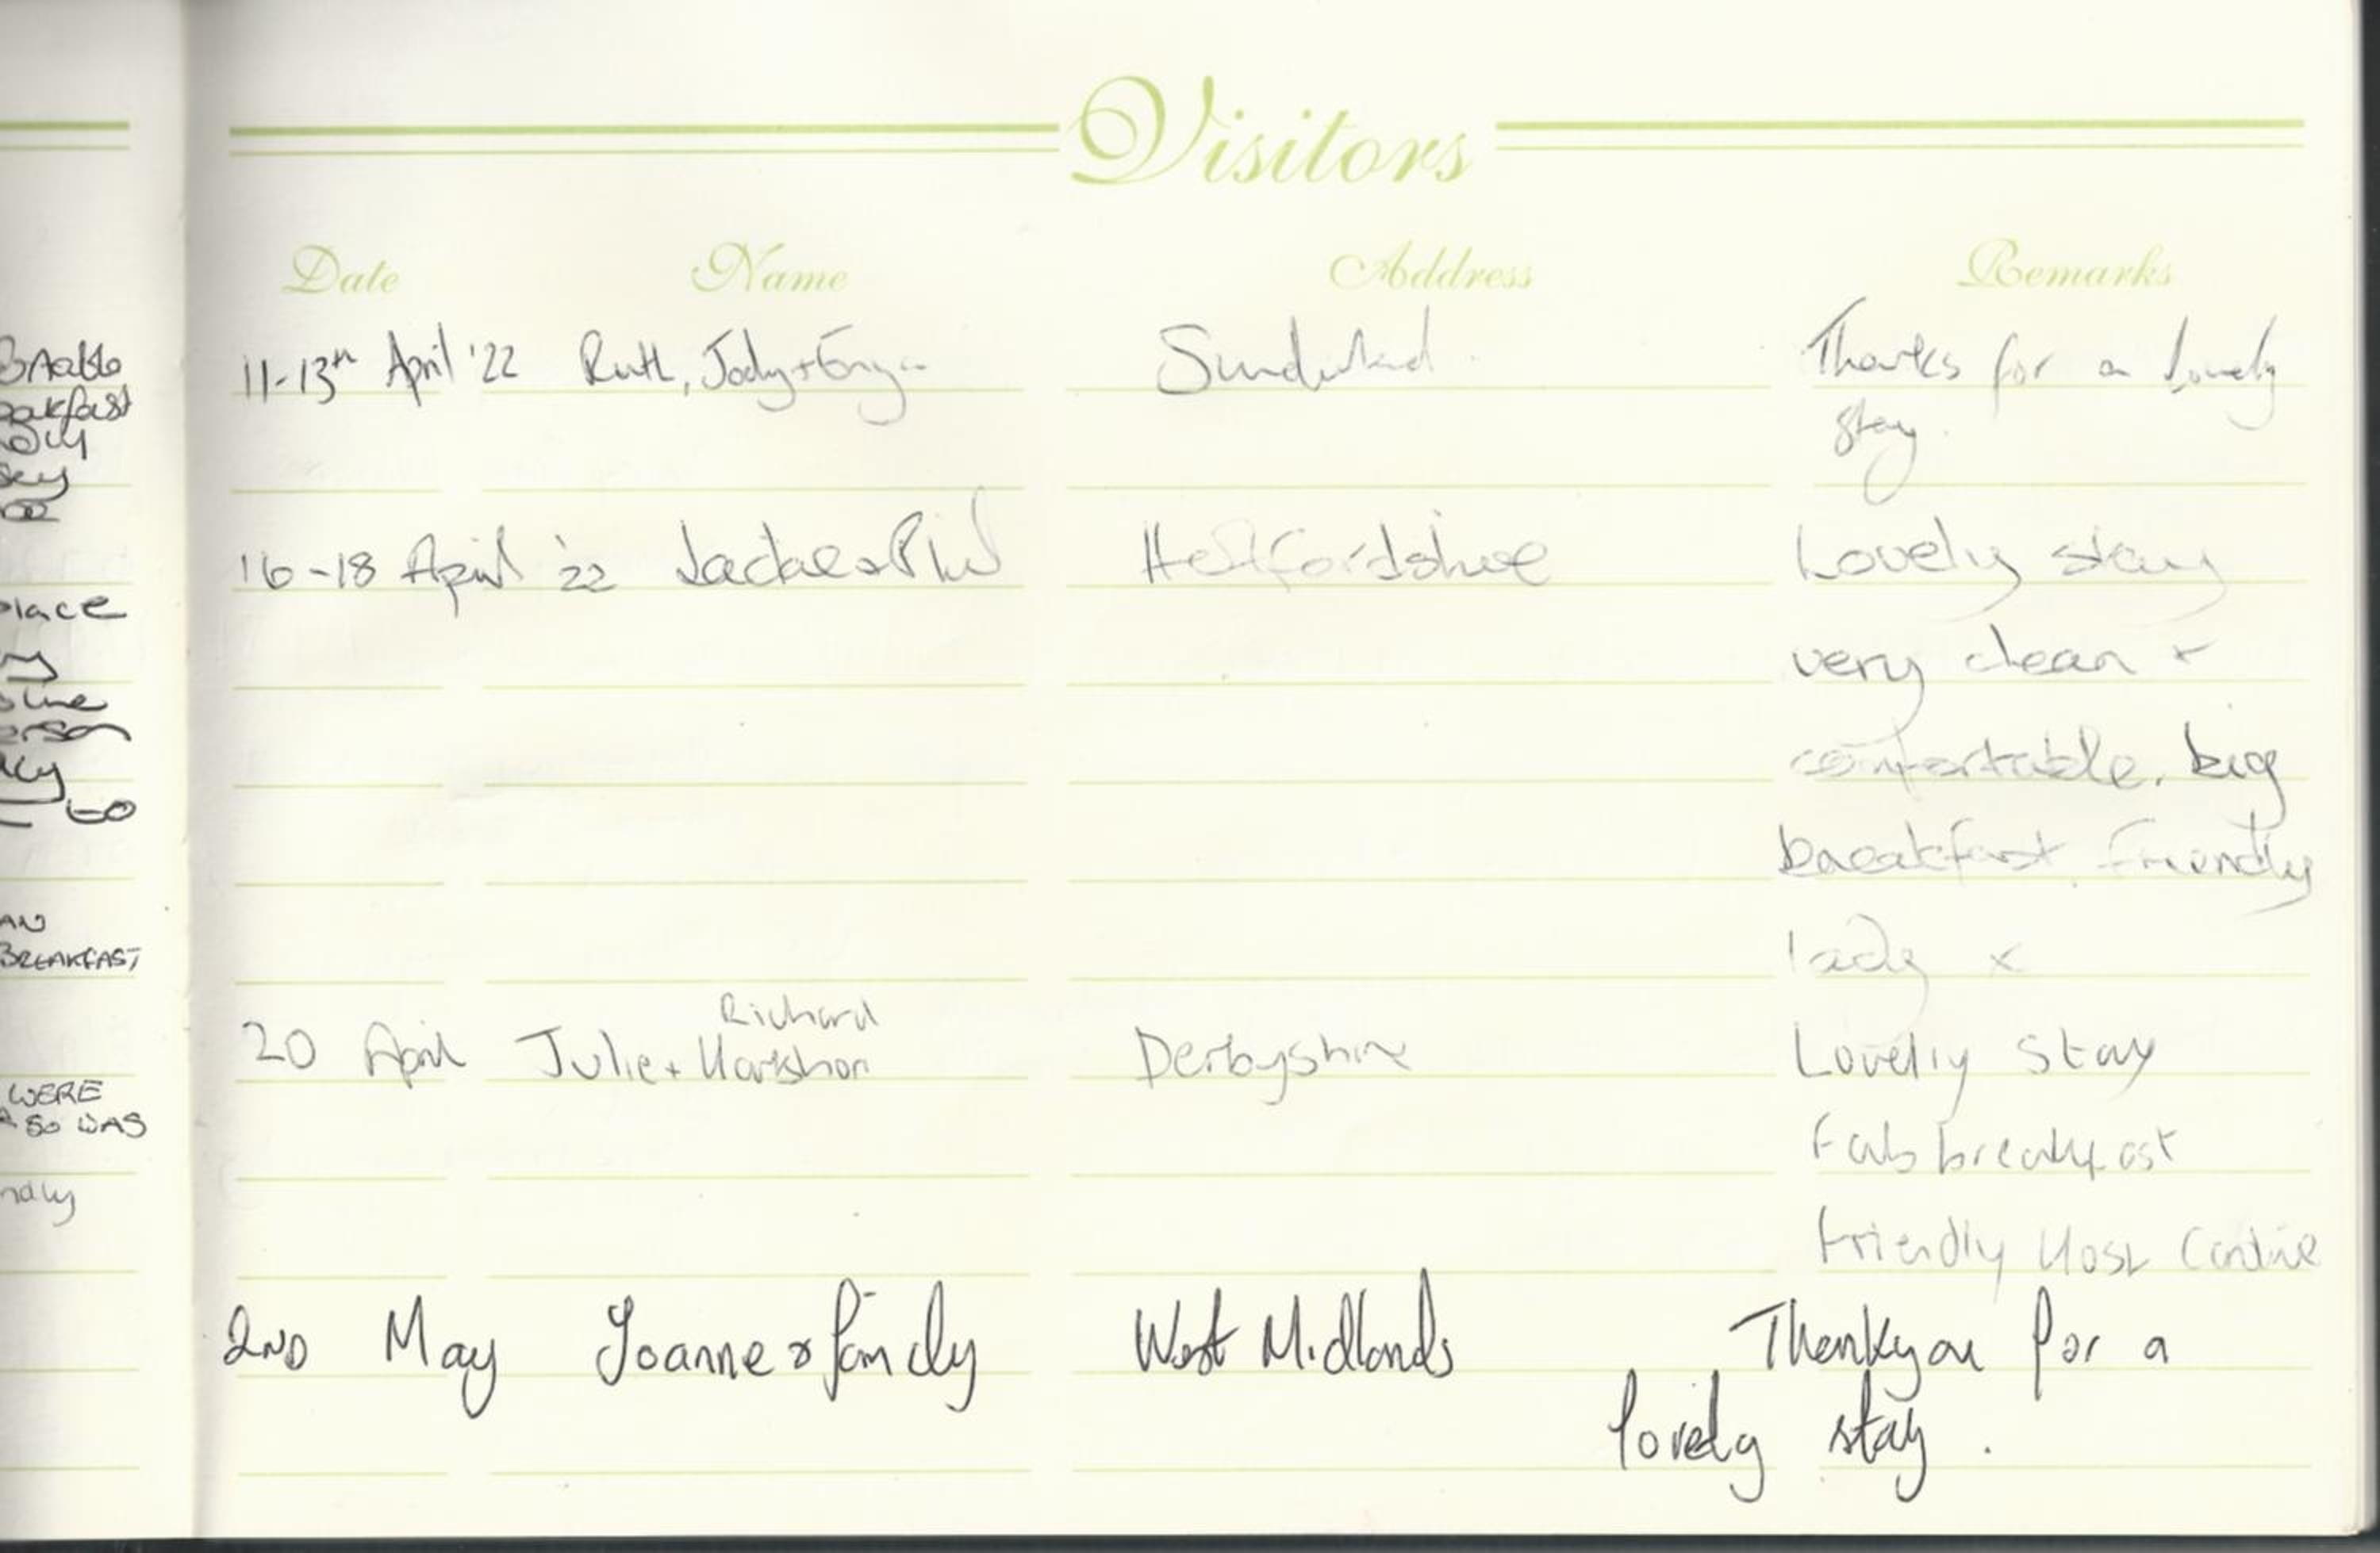 Visitors
Date Name Address Remarks
11-13th April '22 Ruth, Jody + Sunderland. Thanks for a lovely
stay.
16-18 April '22 Jackie & Phil Hertfordshire Lovely stay
very clean +
comfortable. big
breakfast. friendly
lady x
Richard
20 April Julie + Derbyshire Lovely stay
Fab breakfast
Friendly Host
2ND May Joanne & family West Midlands Thankyou for a
lovely stay.
place
AN
BREAKFAST
WERE
SO WAS